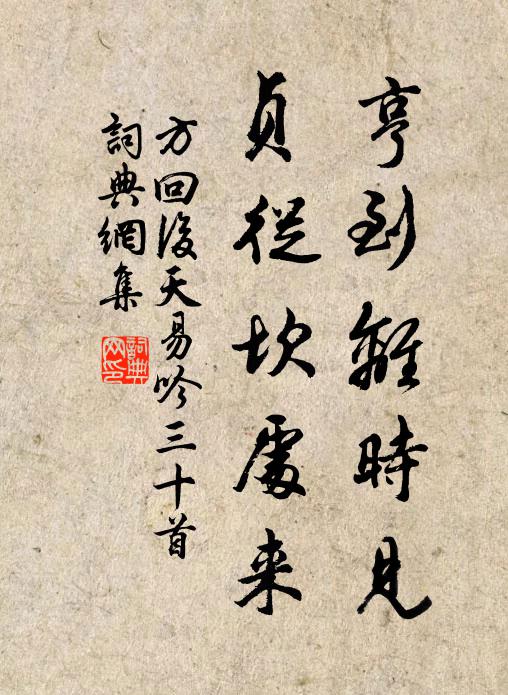 亨到離時見
貞從坎處來
方回後天易吟三十首
詞典網集
詞典网印